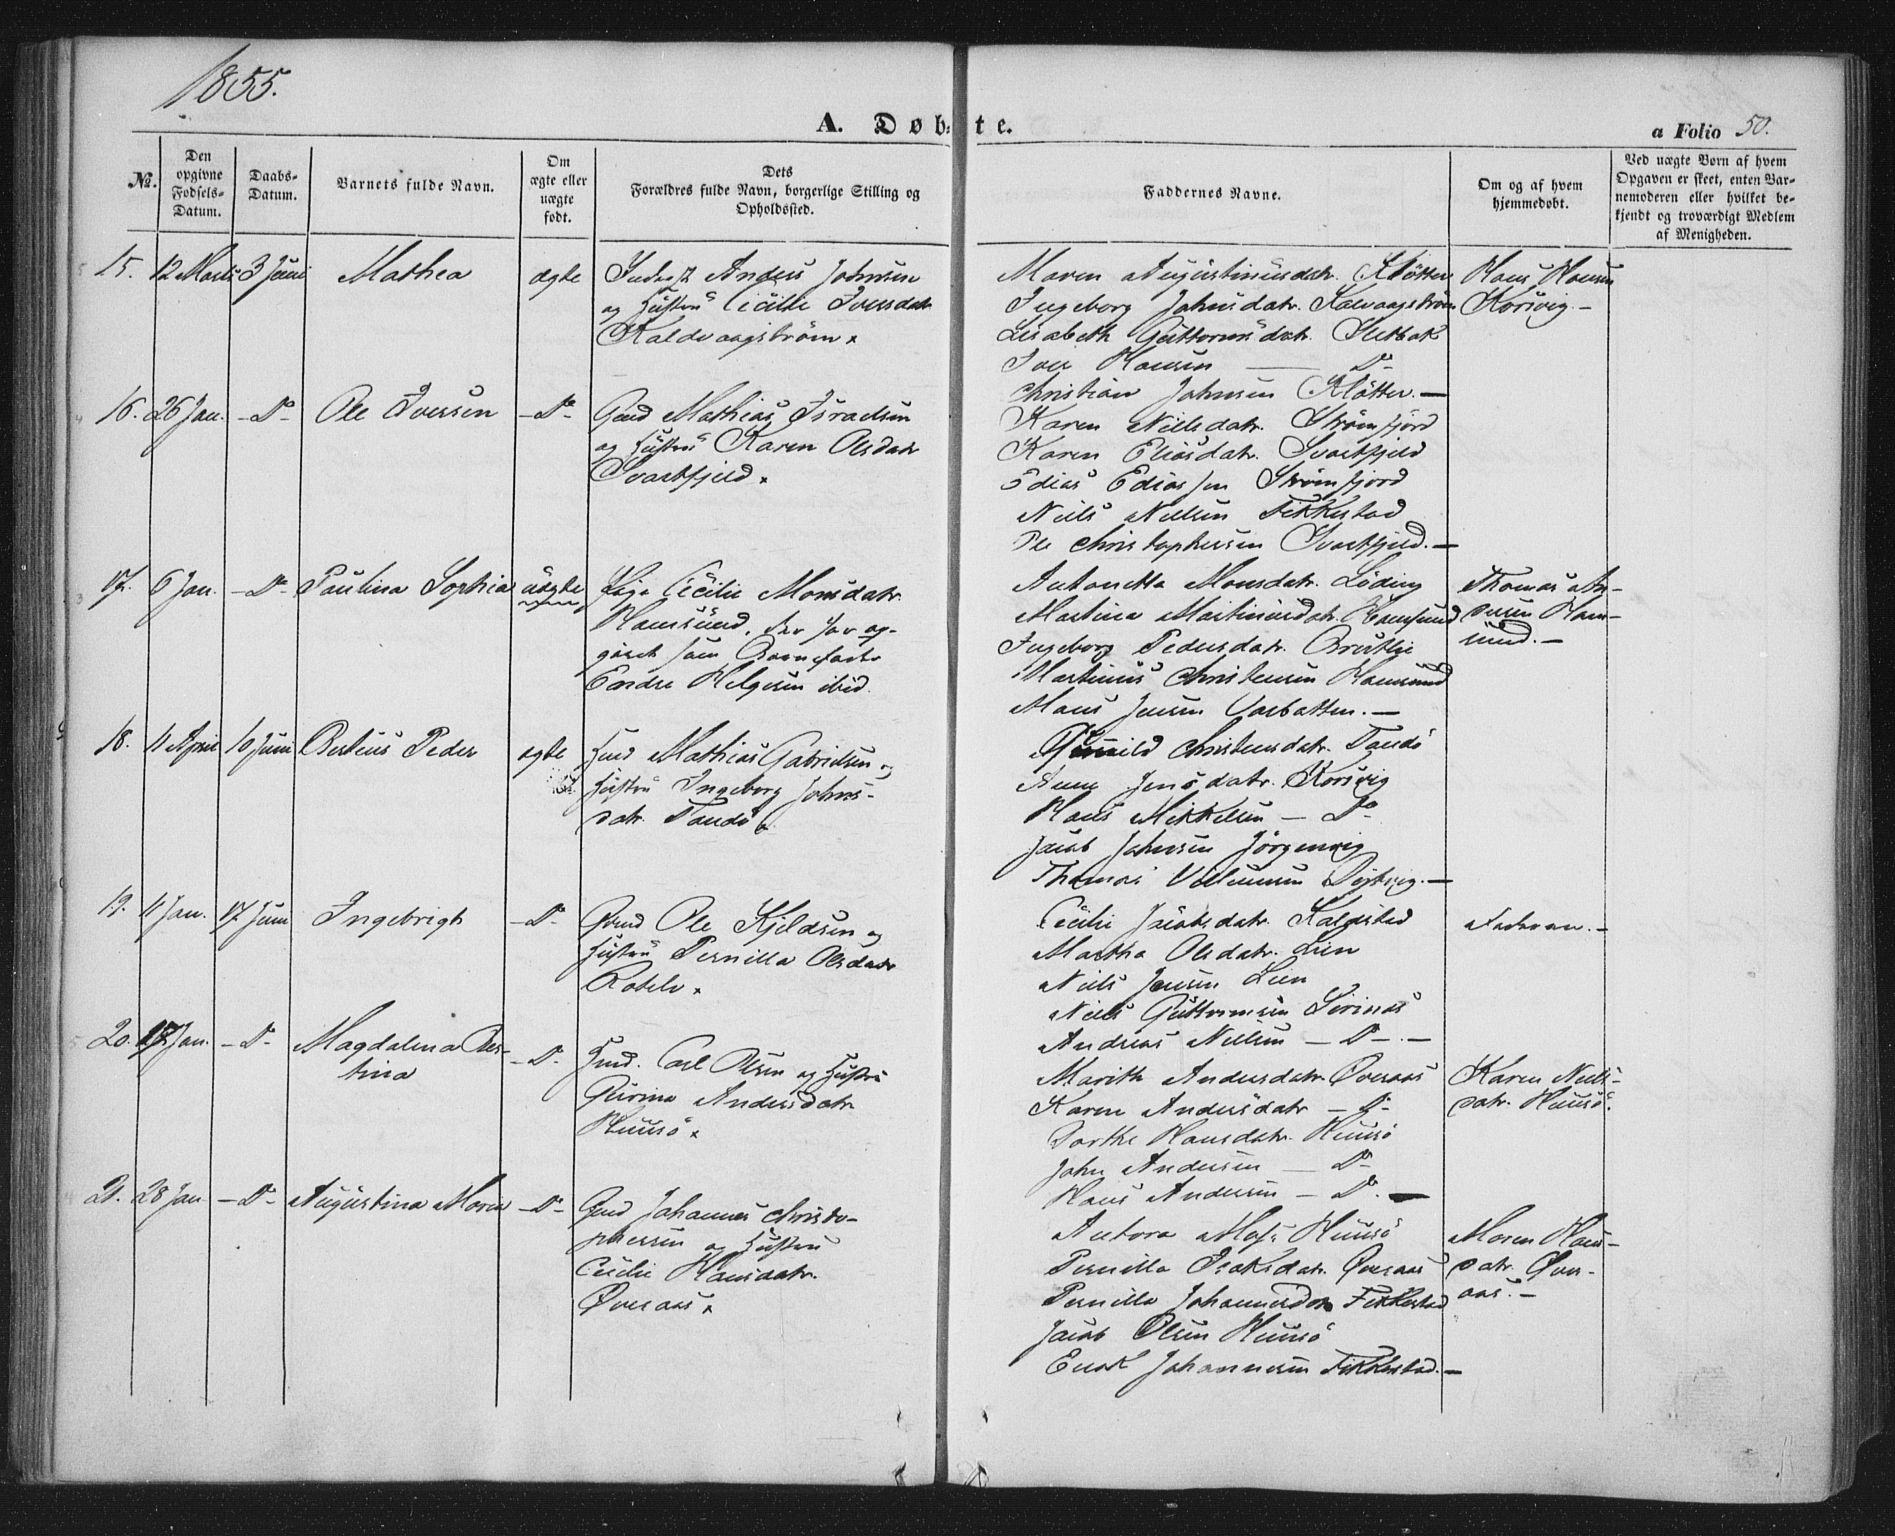 1855.
A. Døbte.
a Folio 50.
No.
Den opgivne Fødsels-Datum.
Daabs-Datum.
Barnets fulde Navn.
Om ægte eller uægte født.
Dets Forældres fulde Navn, borgerlige Stilling og Opholdssted.
Faddernes Navne.
Om og af hvem hjemmedøbt.
Ved uægte Børn af hvem Opgaven er skeet, enten Barnemoderen eller hvilket bekjendt og troværdigt Medlem af Menigheden.
15. 12 Marts 3 Juni Mathea ægte
Anders Johnsen
og Hustru Cecilie Iversdatr
Kaldvaagstrøm
Maren Augustinusdatr. Kløtten
Ingeborg Johnsdatr. Kalvaagstrøm
Lisabeth Guttormsdatr. Sletbak
Iver Hansen — Do
Christian Johnsen Kløtten.—
Hans Hansen
Korsvig.—
16. 26 Jan. —Do— Ole Iversen —Do—
Gmd Mathias Israelsen
og Hustru Karen Olsdatr
Svartfjeld
Karen Nielsdatr. Strømfjord
Karen Eliasdatr. Svartfjeld
Edias Ediassen Strømfjord
Niels Nielsen Fikkestad
Ole Christophersen Svartfjeld.—
17. 6 Jan. —Do— Paulina Sophia uægte
Pige Cecilie Monsdatr
Hamsund, der har op-
givet som Barnefader
Endre Helgesen ibid.
Antonetta Monsdatr. Løding
Martina Martinusdatr. Hamsund
Ingeborg Pedersdatr.
Martinus Christensen Hamsund
Hans Jensen Varbatten.—
Thomas An-
dersen Ham-
sund.—
18. 11 April 10 Juni Berteus Peder ægte
Huusmd Mathias Gabrielsen og
Hustru Ingeborg Johns-
datr. Tandø
Gunild Christensdatr. Tandø
Anne Jensdatr. Korsvig
Hans Mikkelsen — Do
Jacob Johnsen Jörgenvig
Thomas Dypvig.—
19. 11 Jan. 17 Juni Ingebrigt —Do—
Gmd Ole Kjeldsen og
Hustru Pernilla Olsdatr
Cecilie Jacobsdatr. Kaldstad
Martha Olsdatr. Lien
Niels Jensen Lien
Niels Guttormsen
Andreas Nielsen — Do —.—
Faderen.—
20. Jan. —Do— Magdalena Ber-
tina —Do—
Hmd. Carl Olsen og Hustru
Gurina Andersdatr
Huusø
Marith Andersdatr. Øveraas
Karen Andersdatr — Do—
Dorthe Hansdatr. Huusø
John Andersen — Do
Hans Andersen — Do.—
Karen Niels-
datr. Huusø.
21. 28 Jan —Do— Augustina Maria —Do—
Gmd Johannes Christo-
phersen og Hustru
Cecilie Hansdatr.
Øveraas
Antora Huusø
Pernilla Isaksdatr. Øveraas
Pernilla Johannesdatr Fikkestad
Jacob Olsen Huusø
Enok Johannesen Fikkestad.—
Maren Hans-
datr. Øver-
aas.—